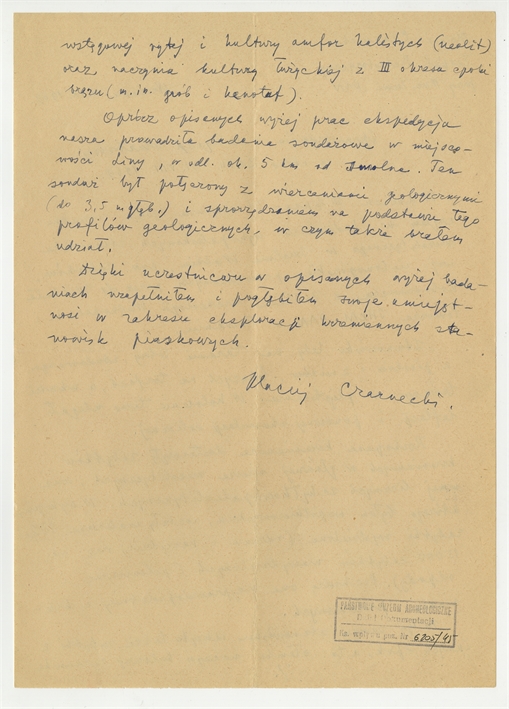 wstęgowej rytej i kultury amfor kulistych (neolit)
oraz naczynia kultury łużyckiej z III okresu epoki
brązu (m.in. grób i kenotaf).
Oprócz opisanych wyżej prac ekspedycja
nasza prowadziła badania sondażowe w miejsco-
wości Liny, w odl. ok. 5 km od Smolna. Ten
sondaż był połączony z wierceniami geologicznymi
(do 3,5 m głęb.) i sporządzaniem na podstawie tego
profilów geologicznych, w czym także brałem
udział.
Dzięki uczestnictwu w opisanych wyżej bada-
niach uzupełniłem i pogłębiłem swoje umiejęt-
ności w zakresie eksploracji krzemiennych sta-
nowisk piaskowych.
Maciej Czarnecki.
PAŃSTWOWE MUZEUM ARCHEOLOGICZNE
Dział Dokumentacji
Ks. wpływ. poz. Nr 6805/45